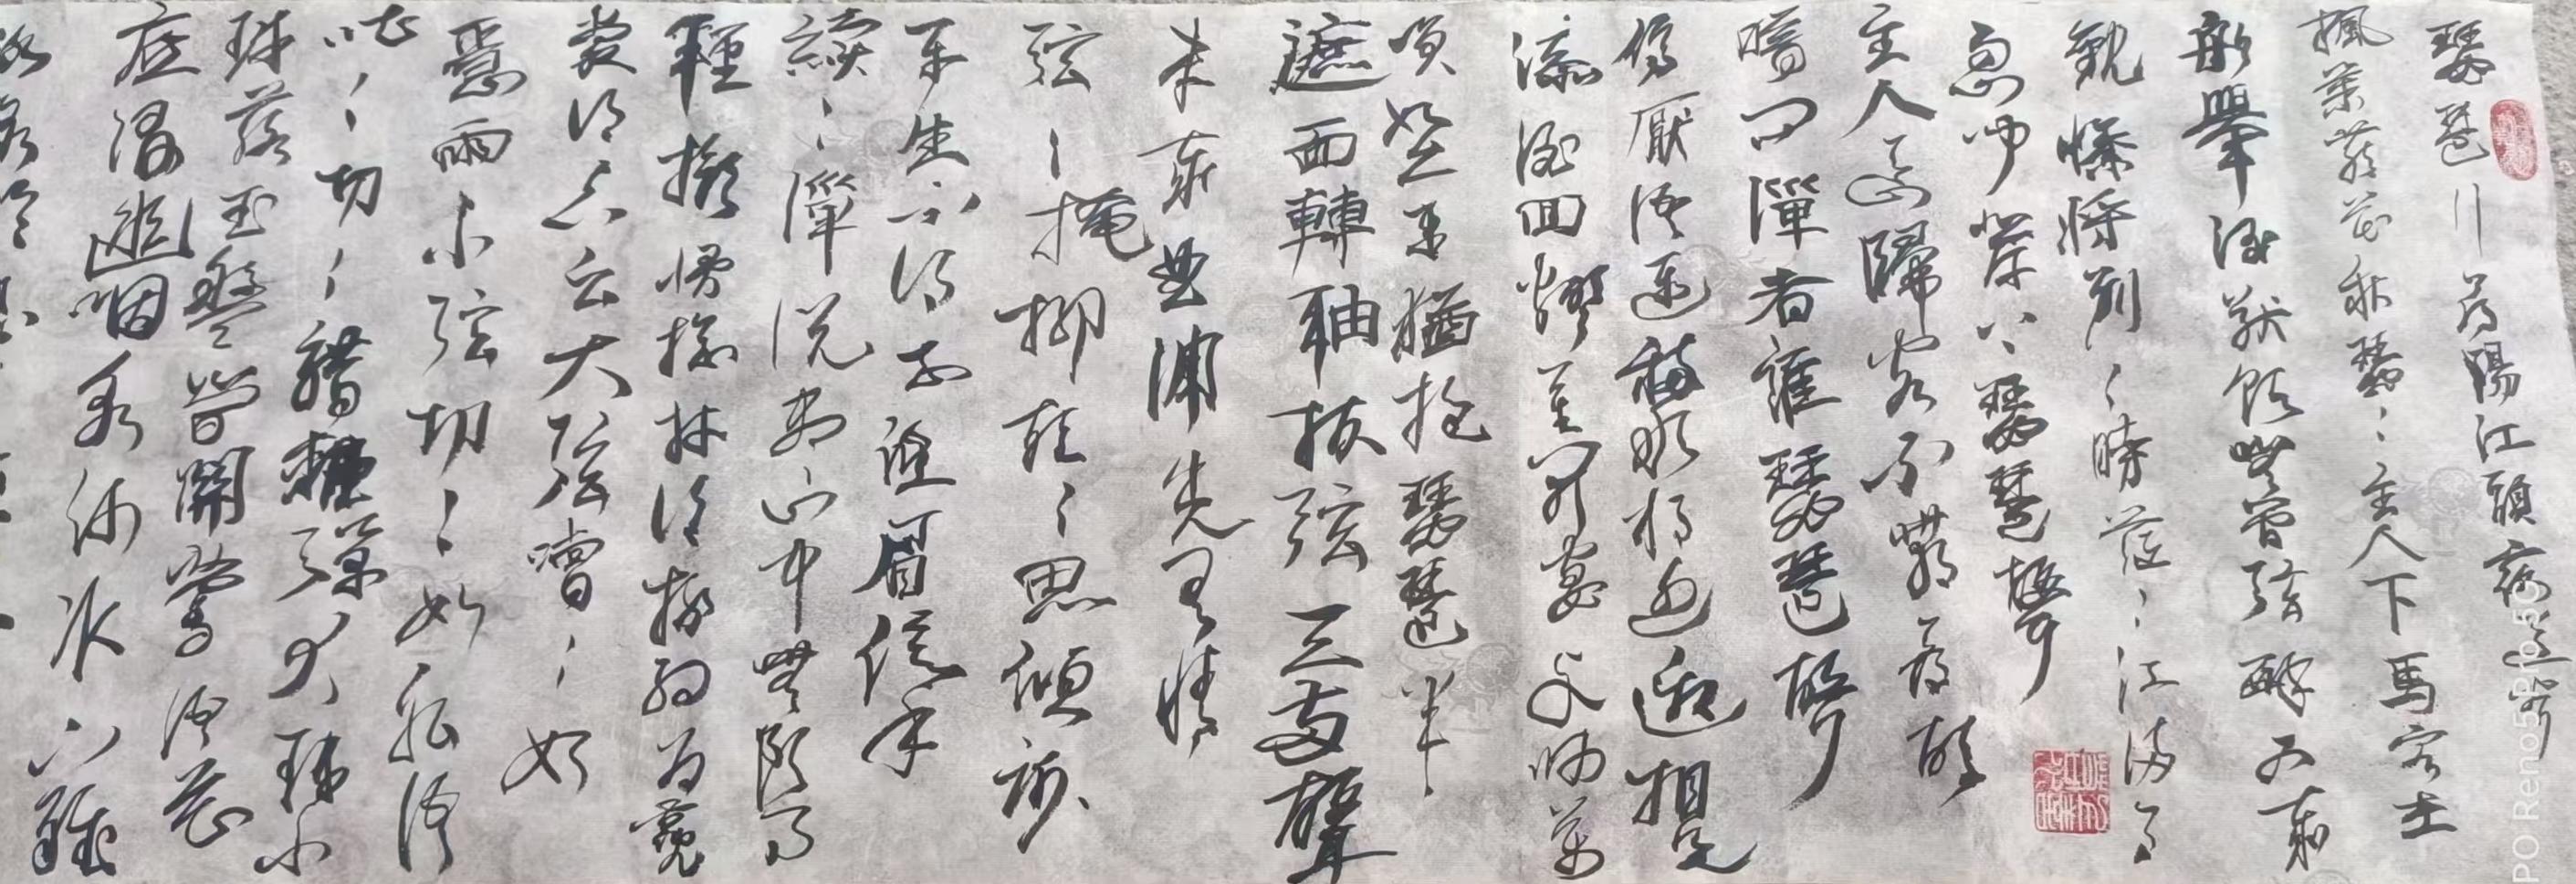 琵琶行潯陽江頭夜送客
楓葉荻花秋瑟〻主人下馬客在
船舉酒欲飲無管弦醉不成
歡慘將別〻時茫〻江浸月
忽聞水上琵琶聲
主人忘歸客不發尋聲
暗問彈者誰琵琶聲
停欲語遲移船相近邀相見
添酒回燈重開宴千呼萬
喚始出來猶抱琵琶半
遮面轉軸撥弦三兩聲
未成曲調先有情
弦〻掩抑聲〻思似訴
平生不得志低眉信手
續〻彈說盡心中無限事
輕攏慢撚抹復挑初為霓
裳後六幺大弦嘈〻如
急雨小弦切〻如私語
嘈〻切〻錯雜彈大珠小
珠落玉盤間關鶯語花
底滑幽咽泉流冰下難